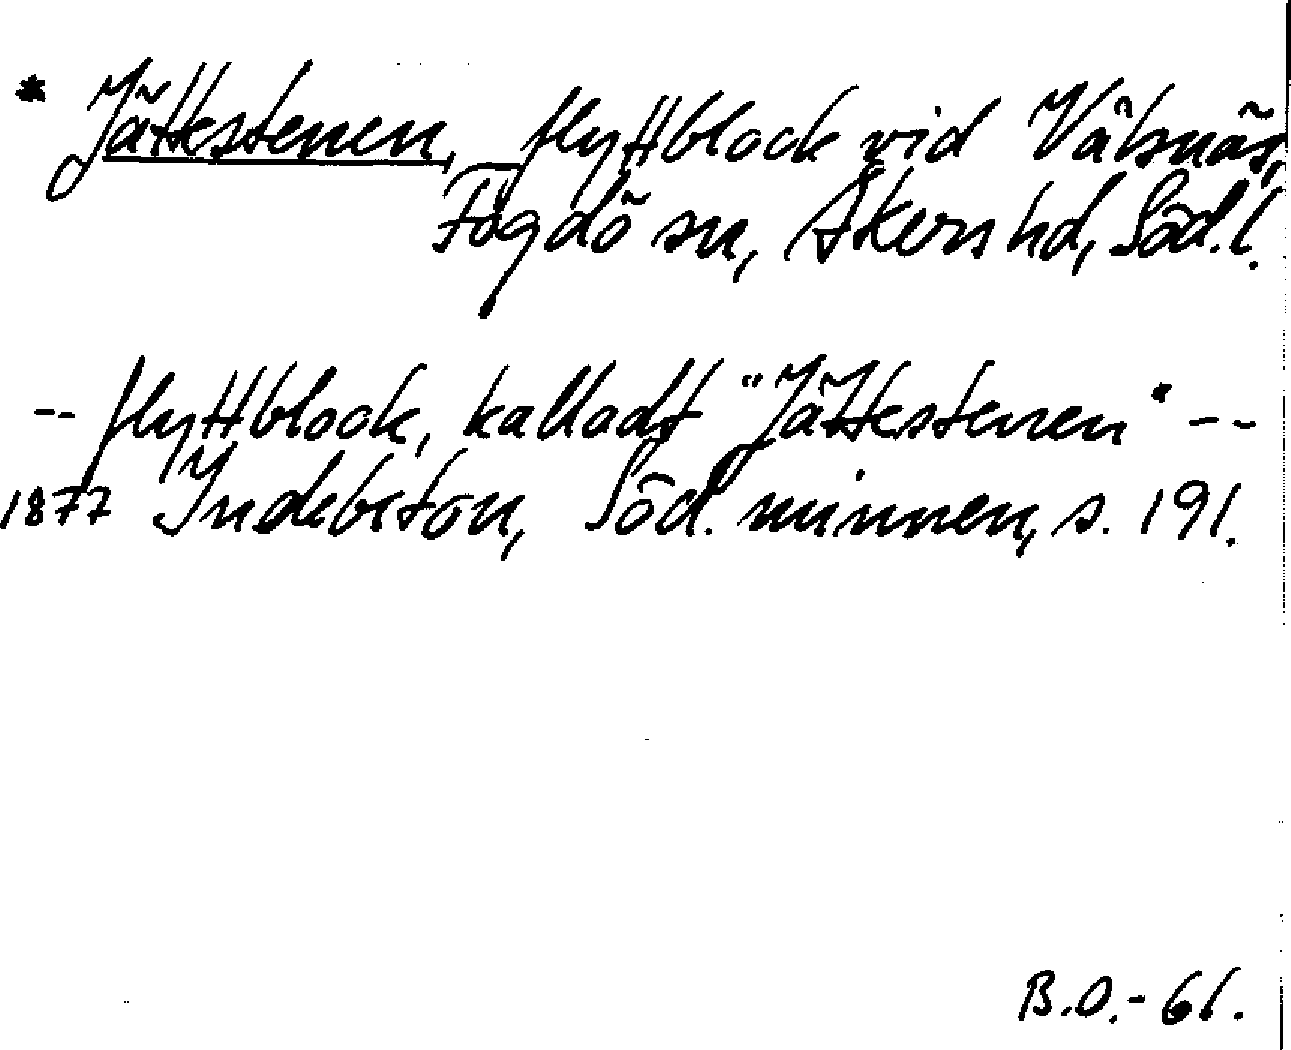 * Jättestenen, flyttblock vid Välsnäs,
Fogdö sn, Åkers hd, Söd.l.
-- flyttblock, kalladt "Jättestenen" --
1877 Indebetou, Söd. minnen, s. 191.
B.O.-61.